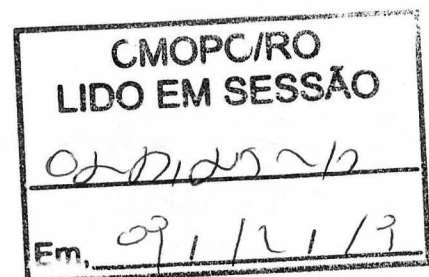 CMOPO/RO
LIDO EM SESSÃO
Em, 09/12/19